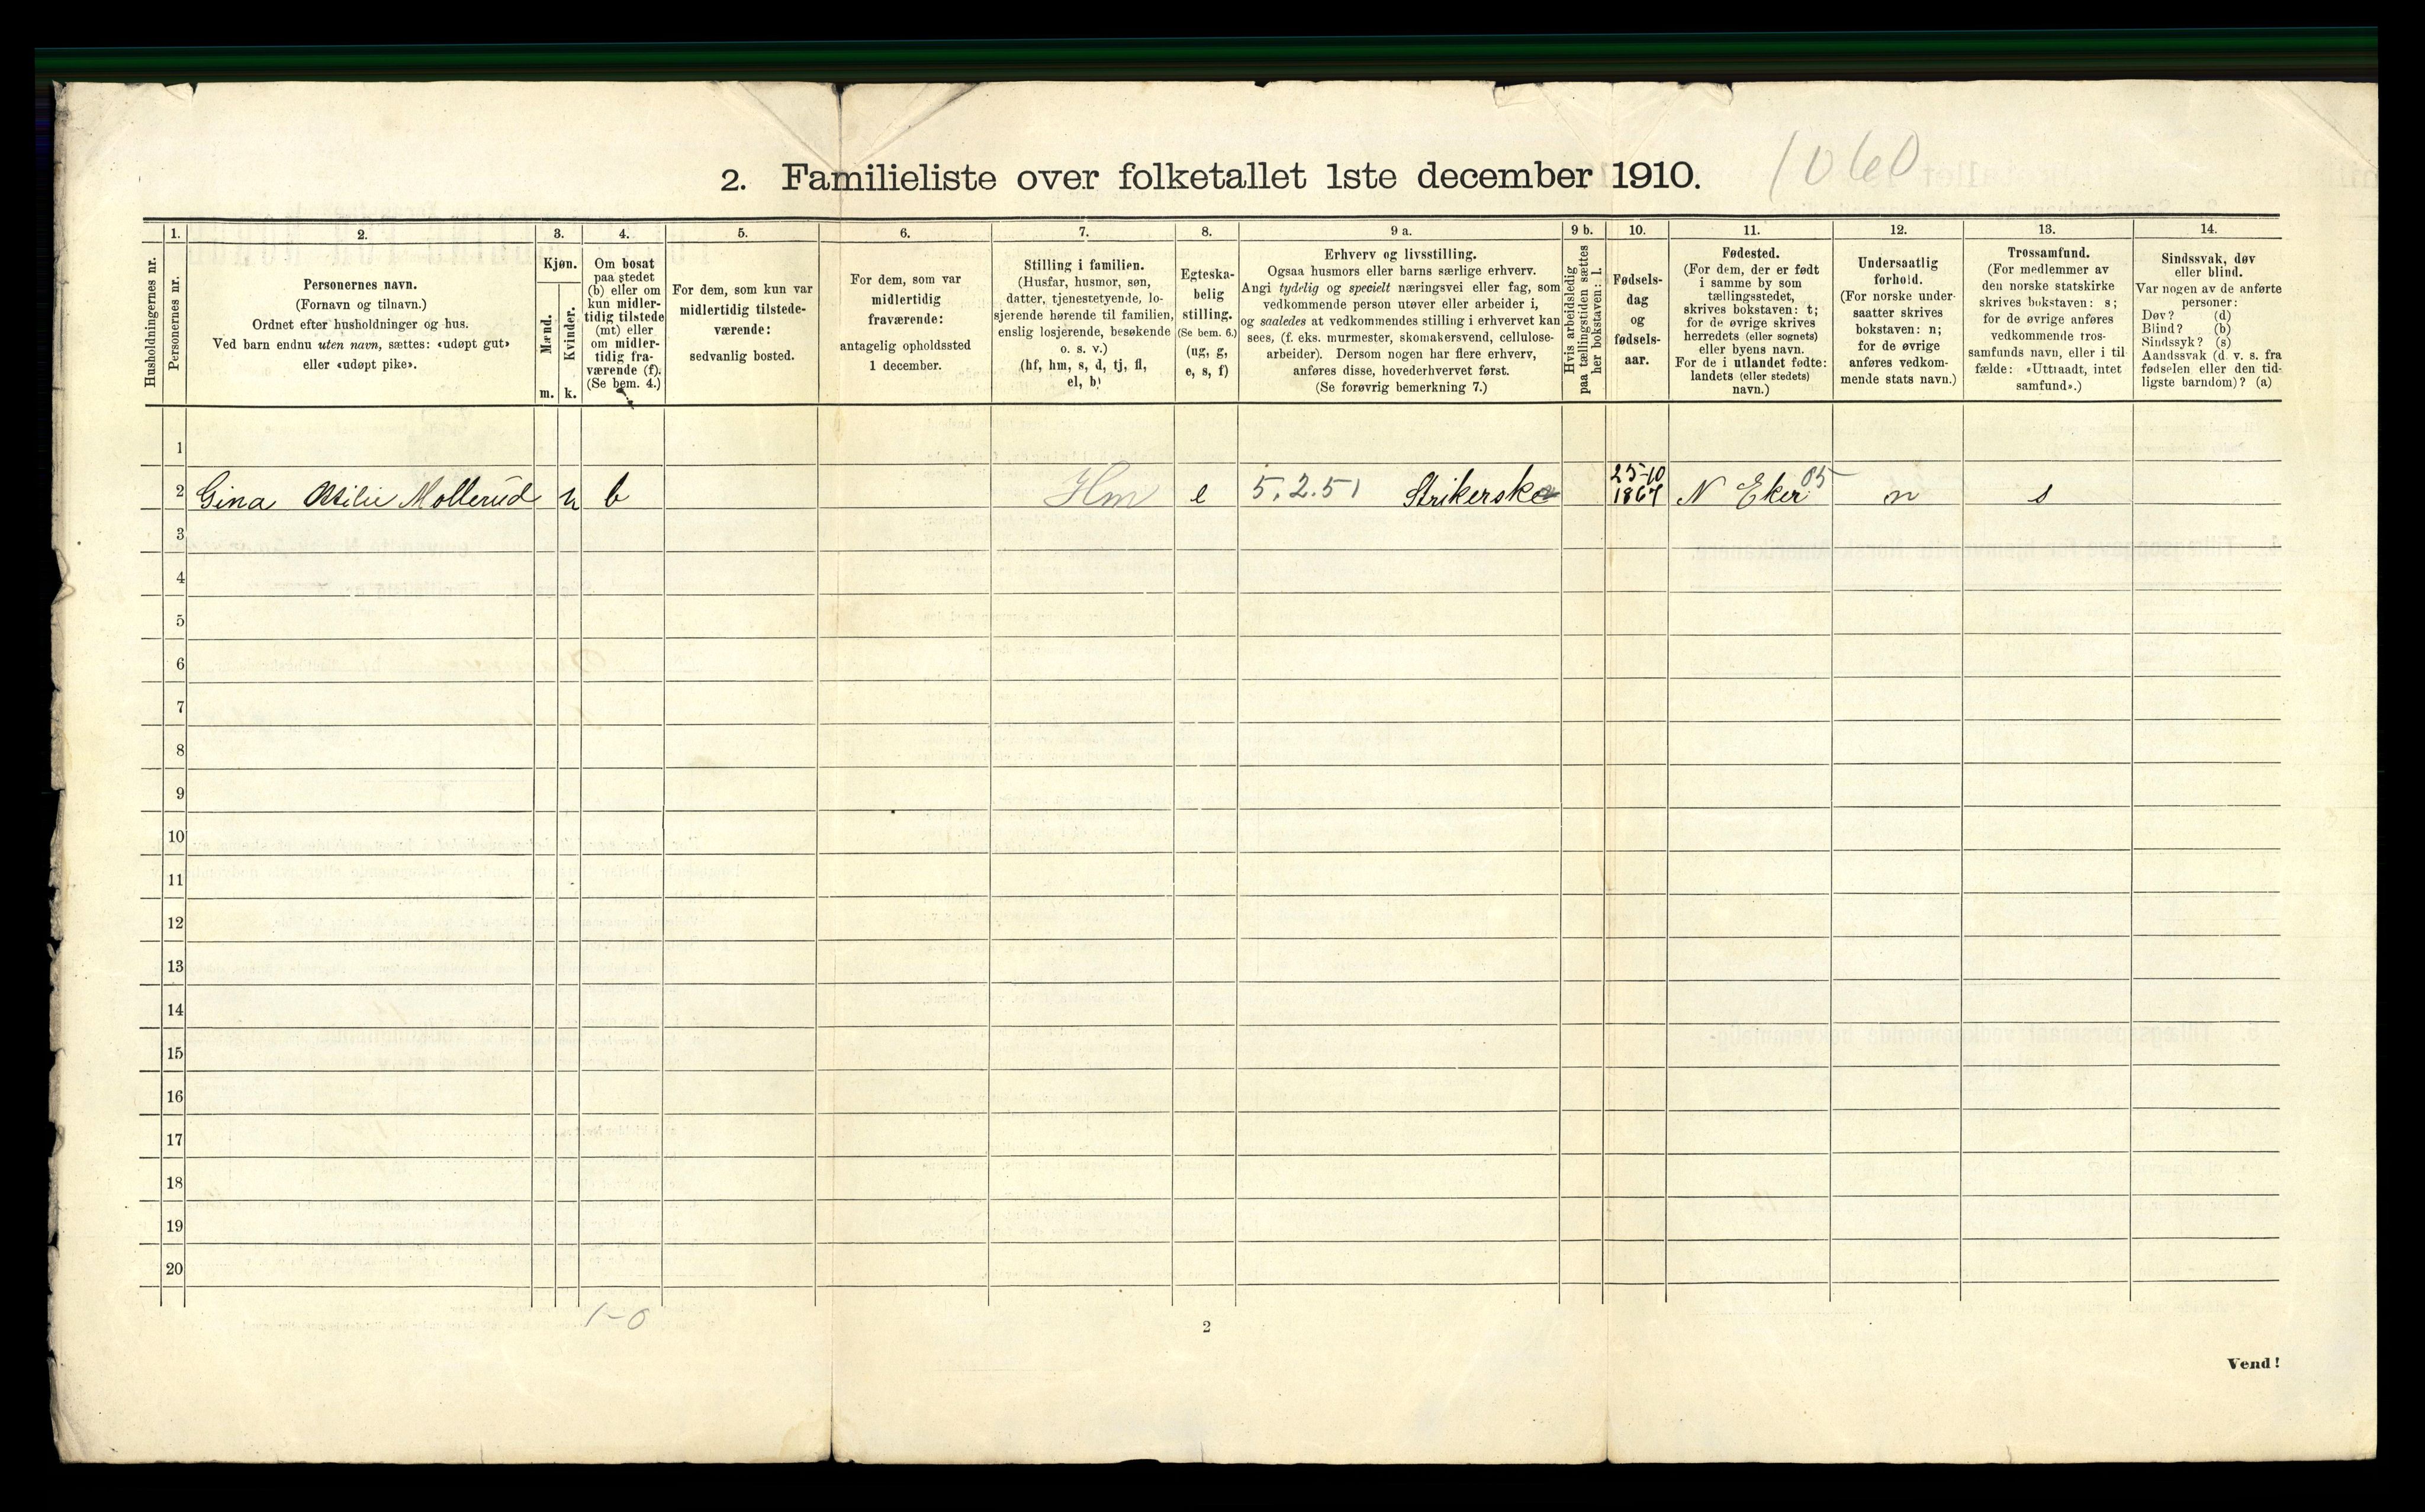 1060
2. Familieliste over folketallet 1ste december 1910.
Husholdningernes nr.
1.
Personernes nr.
2.
Personernes navn.
(Fornavn og tilnavn.)
Ordnet efter husholdninger og hus.
Ved barn endnu uten navn, sættes: «udøpt gut»
eller «udøpt pike».
3.
Kjøn.
Mænd.
Kvinder.
m. k.
4.
Om bosat
paa stedet
(b) eller om
kun midler-
tidig tilstede
(mt) eller
om midler-
tidig fra-
værende (f).
(Se bem. 4.)
5.
For dem, som kun var
midlertidig tilstede-
værende:
sedvanlig bosted.
6.
For dem, som var
midlertidig
fraværende:
antagelig opholdssted
1 december.
7.
Stilling i familien.
(Husfar, husmor, søn,
datter, tjenestetyende, lo-
sjerende hørende til familien,
enslig losjerende, besøkende
o. s. v.)
(hf, hm, s, d, tj, fl,
el, b)
8.
Egteska-
belig
stilling.
(Se bem. 6.)
(ug, g,
e, s, f)
9 a.
Erhverv og livsstilling.
Ogsaa husmors eller barns særlige erhverv.
Angi tydelig og specielt næringsvei eller fag, som
vedkommende person utøver eller arbeider i,
og saaledes at vedkommendes stilling i erhvervet kan
sees, (f. eks. murmester, skomakersvend, cellulose-
arbeider). Dersom nogen har flere erhverv,
anføres disse, hovederhvervet først.
(Se forøvrig bemerkning 7.)
9 b.
Hvis arbeidsledig
paa tællingstiden sættes
her bokstaven: l.
10.
Fødsels-
dag
og
fødsels-
aar.
11.
Fødested.
(For dem, der er født
i samme by som
tællingsstedet,
skrives bokstaven: t;
for de øvrige skrives
herredets (eller sognets)
eller byens navn.
For de i utlandet fødte:
landets (eller stedets)
navn.)
12.
Undersaatlig
forhold.
(For norske under-
saatter skrives
bokstaven: n;
for de øvrige
anføres vedkom-
mende stats navn.)
13.
Trossamfund.
(For medlemmer av
den norske statskirke
skrives bokstaven: s;
for de øvrige anføres
vedkommende tros-
samfunds navn, eller i til-
fælde: «Uttraadt, intet
samfund».)
14.
Sindssvak, døv
eller blind.
Var nogen av de anførte
personer:
Døv? (d)
Blind? (b)
Sindssyk? (s)
Aandssvak (d. v. s. fra
fødselen eller den tid-
ligste barndom)? (a)
1
2 Gina Otilie Mollerud k b Hm e 5.2.51 Strikerske 25-10 1867 N Eker 05 n s
3
4
5
6
7
8
9
10
11
12
13
14
15
16
17
18
19
20
1-0
2
Vend!